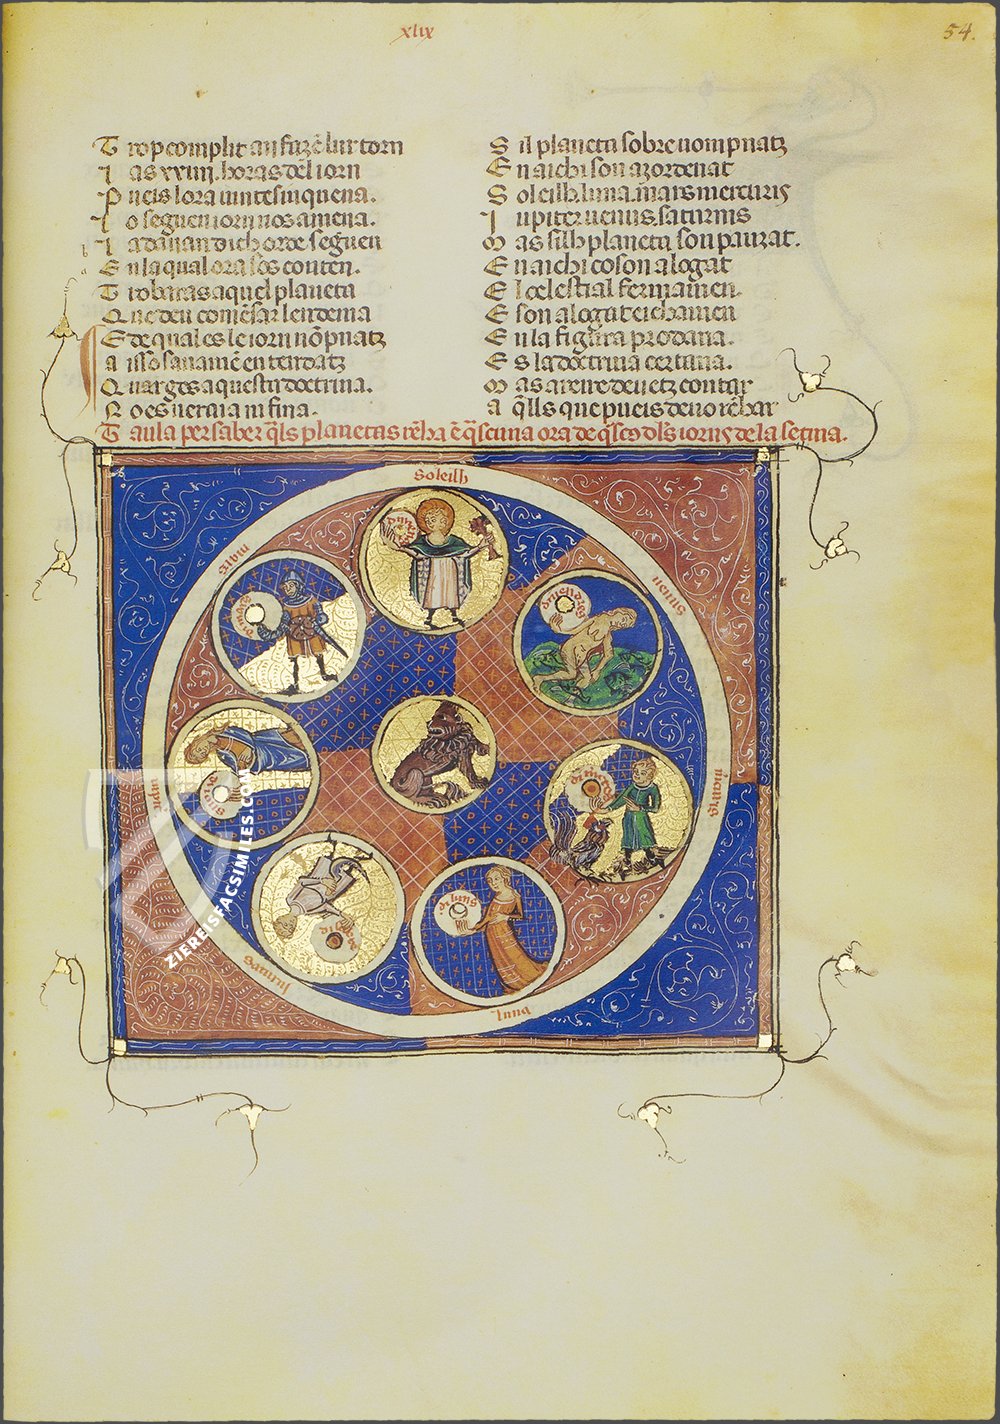 xlix
54.
Trop complit an fazẽ lur torn
Las xxiiij. horas del iorn
Pueis lora uintesinquena.
Lo seguen iorn nos amena.
La dauan dich orde seguen
En la qual ora sos conten.
Trobaras aquel planeta
Que deu comẽsar lendema
E de qual es le iorn nõpnatz
aissosanamẽ entendatz
Quar ges aquesta doctrina.
No es ueraia ni fina.
Sil planeta sobre nompnatz
En aichi son azordenat
Soleilh. luna. mars mercuris
Iupiter uenus. saturnus
Mas silh planeta son pauzat.
En aichi co son alogat
El celestial fermamen.
E son alogat eichamen
En la figura prodana.
Es la doctrina certana.
Mas areire deuetz contar
a q̃lls que pueis deuo rẽhar
Taula per saber q̃ls planetas rẽha ẽ q̃scuna ora de q̃scũ dls iorns de la setma.
Soleilh
uenus
mcuris
luna
saturnus
iupit
ZIEREISFACSIMILES.COM